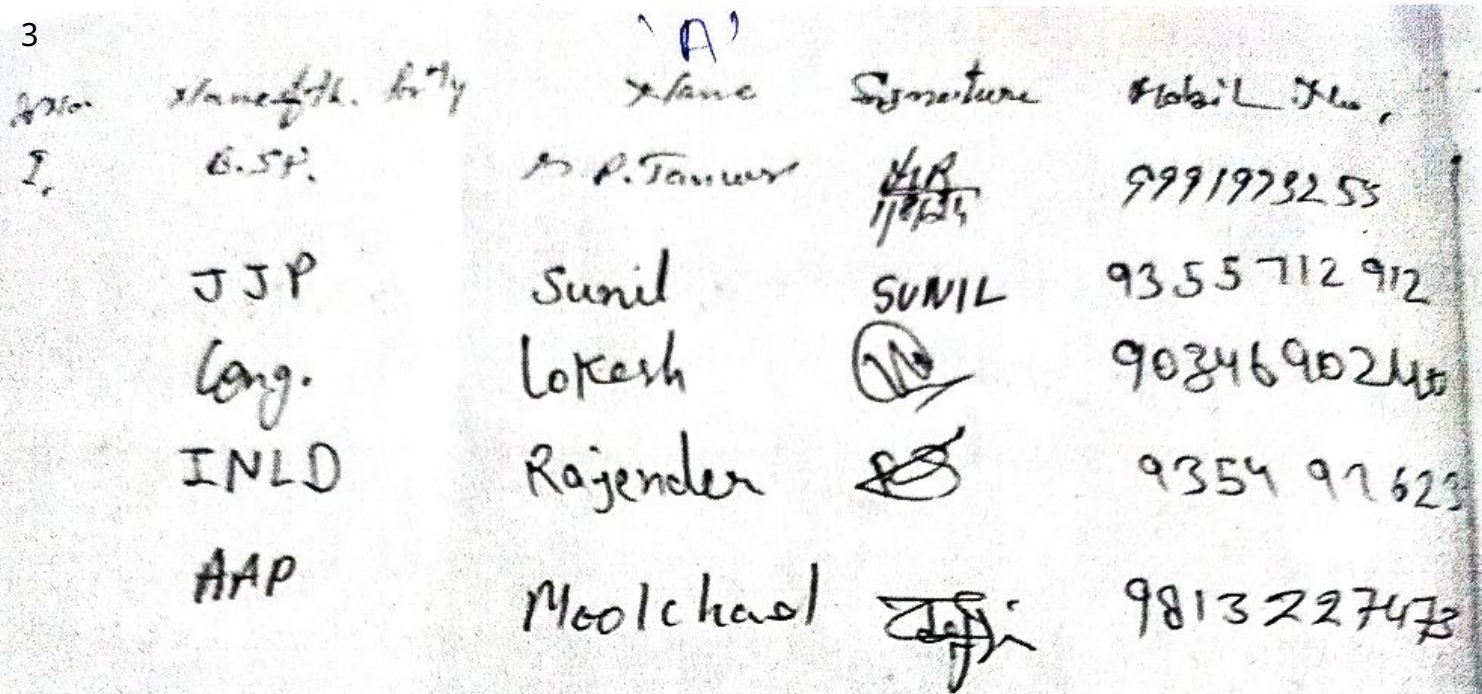 3
'A'
Sr.No. Name of th. Party Name Signature Mobil No.
1. B.SP. P. Tanwar 9991973255
JJP Sunil SUNIL 9355712912
Cong. Lokesh
INLD Rajender
AAP Moolchand 9813227473